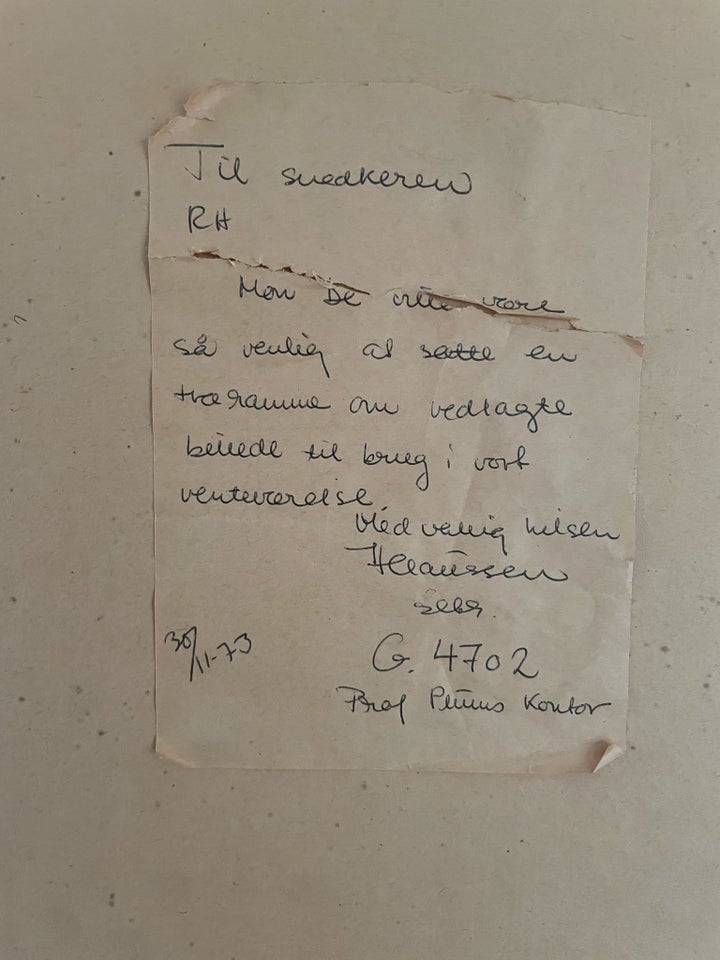 Til snedkeren
RH
Mon De ville være
så venlig at sætte en
træramme om vedlagte
billede til brug i vort
venteværelse.
Med venlig hilsen
HClaussen
sekr.
30/11-73
G. 4702
Prof Plums Kontor